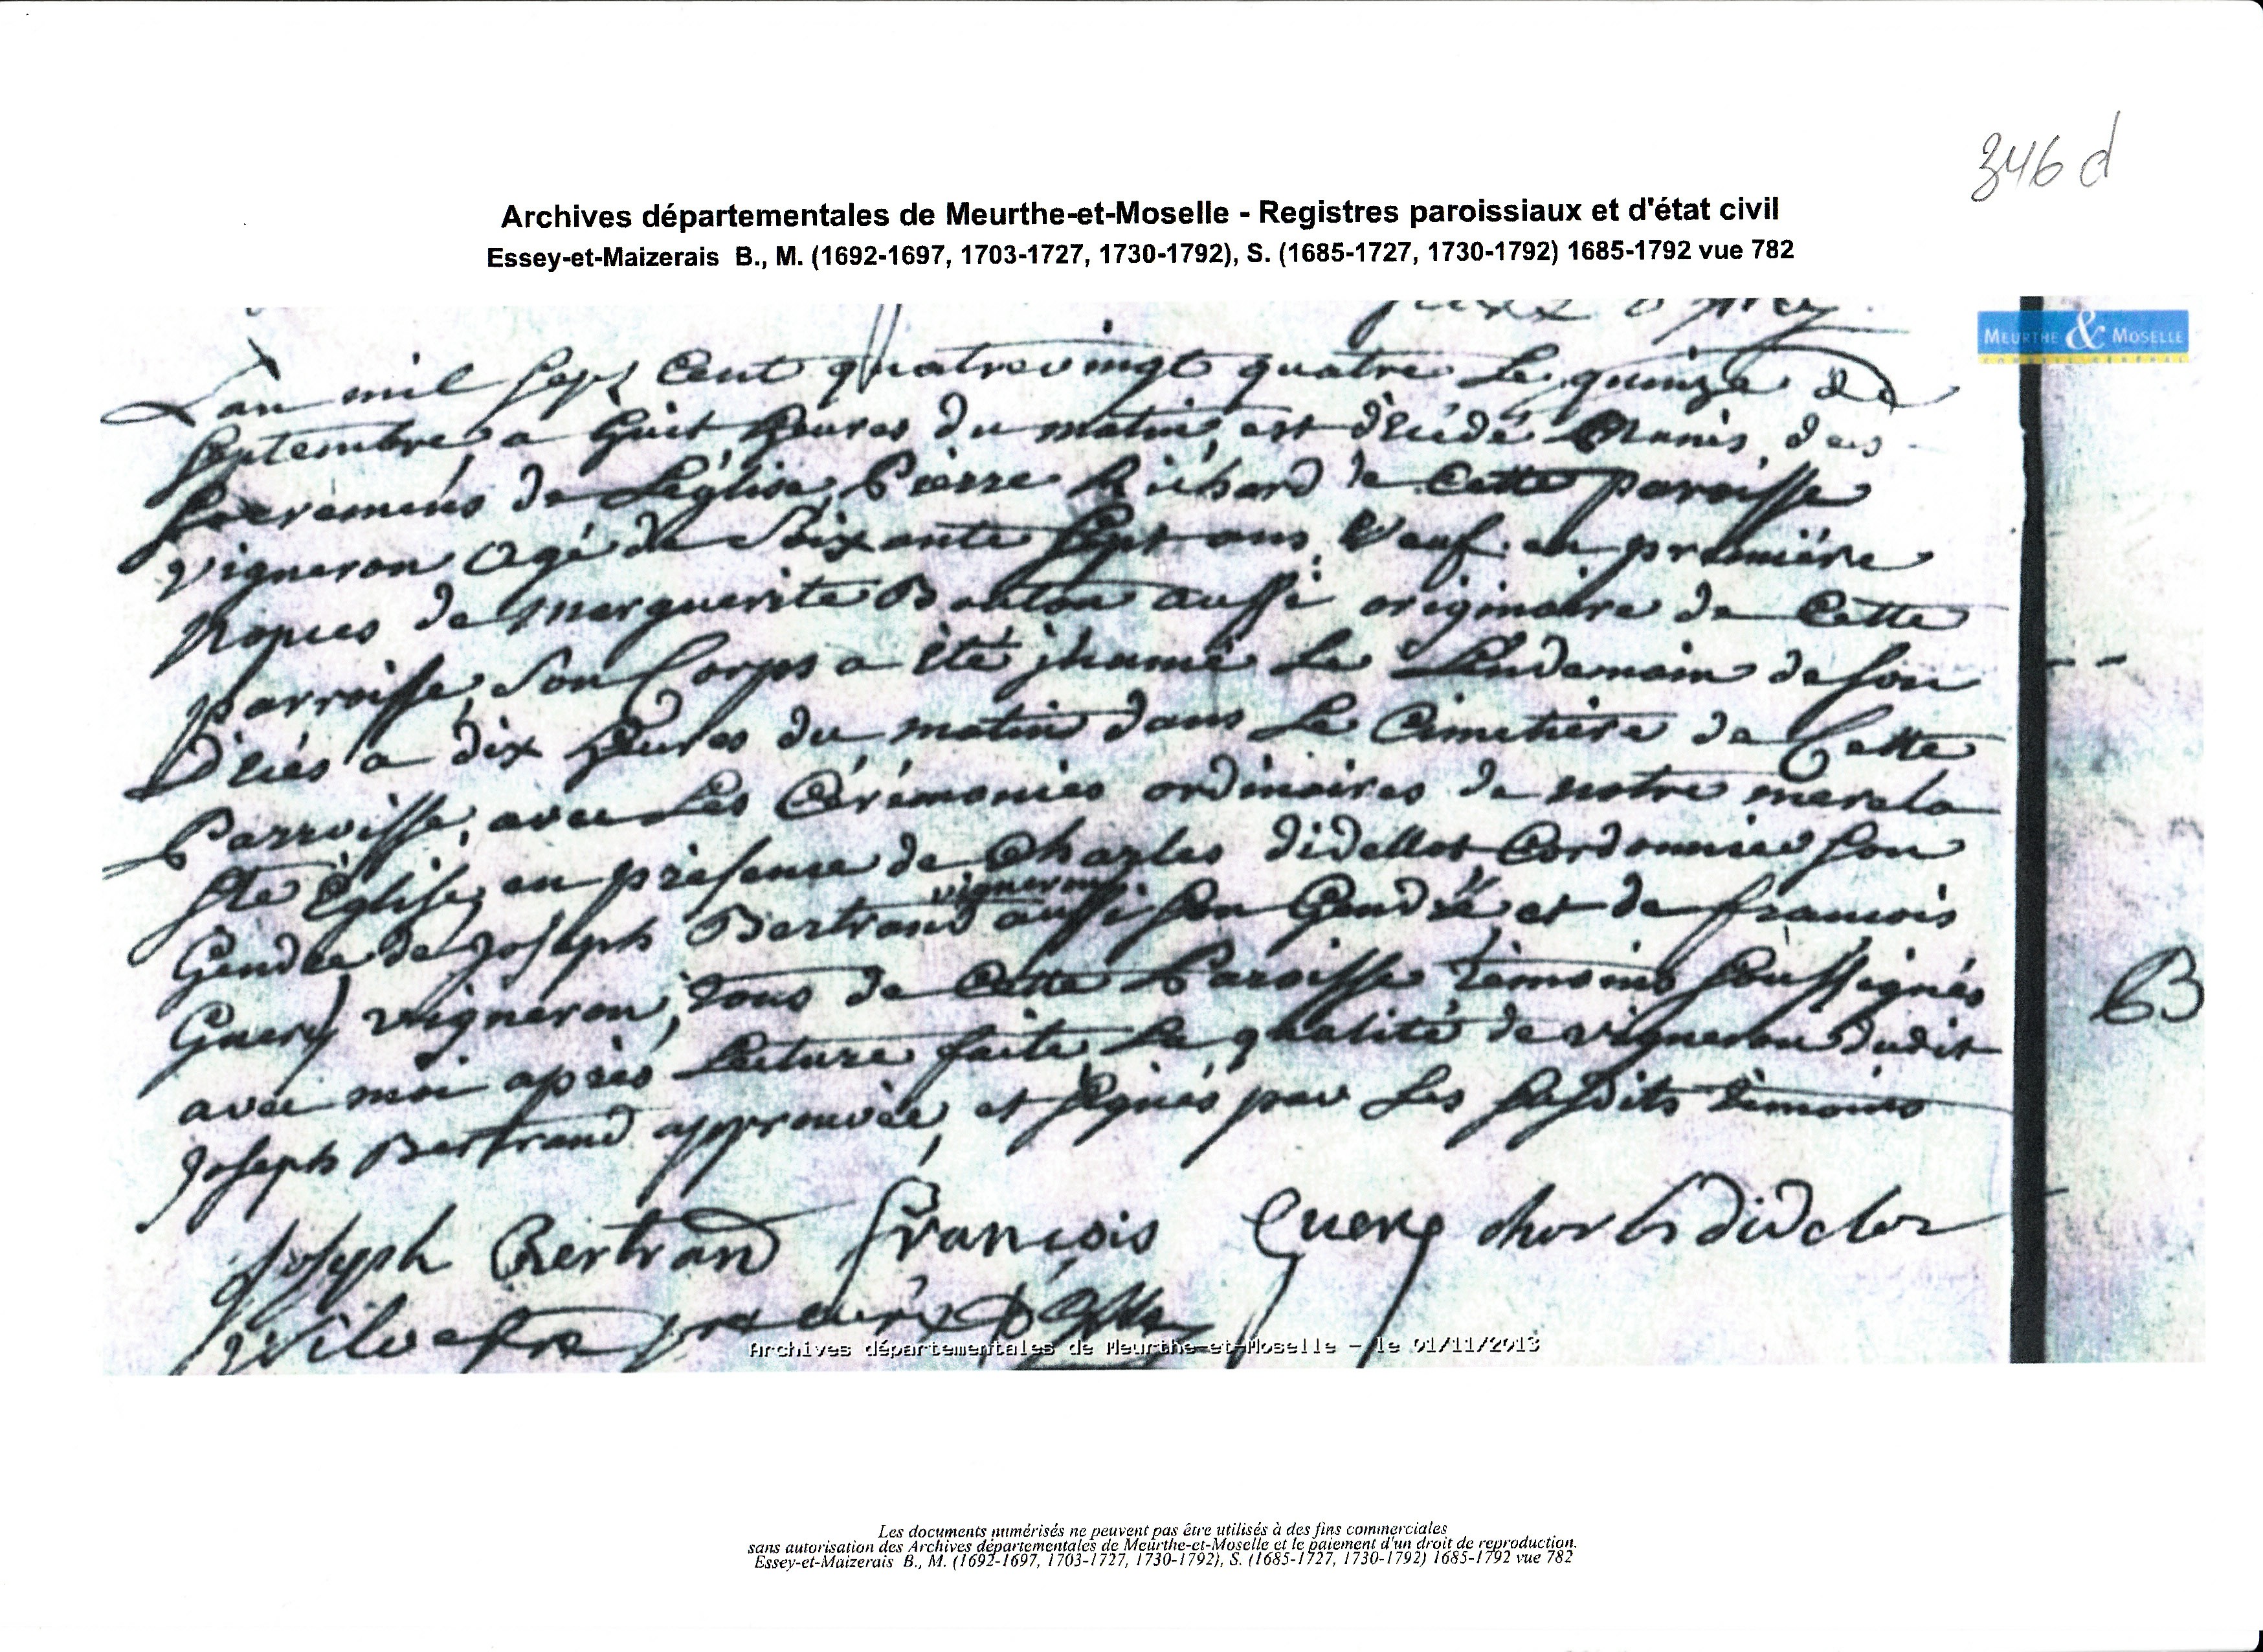 346 d
Archives départementales de Meurthe-et-Moselle - Registres paroissiaux et d'état civil
Essey-et-Maizerais B., M. (1692-1697, 1703-1727, 1730-1792), S. (1685-1727, 1730-1792) 1685-1792 vue 782
MEURTHE & MOSELLE
CONSEIL GÉNÉRAL
L'an mil sept Cent quatrevingt quatre Le quinze de
Septembre a huit heures du matin, est décédé Munis des
Sacremens de L'église, Pierre Richard de Cette paroisse
vigneron agé de Soixante Sept ans, Veuf en première
nopces de marguerite Bouton aussi originaire de Cette
parroisse, Son Corps a été jhumé Le Lendemain de son
Décés a dix heures du matin dans Le Cimetière de Cette
Parroisse, avec Les Cérémonies ordinaires de notre mere la
Ste Eglise, en présence de Charles didellot Cordonnier son
vigneron
Gendre de Joseph Bertrand aussi son Gendre et de francois
Guery vigneron, tous de Cette Paroisse témoins soussignés
avec moi après Lecture faite La qualité de vigneron dudit
Joseph Bertrand approuvée, et signés par Les susdits témoins
Joseph Bertrand françois Guery charles didelot
B
Archives départementales de Meurthe-et-Moselle - le 01/11/2013
Les documents numérisés ne peuvent pas être utilisés à des fins commerciales
sans autorisation des Archives départementales de Meurthe-et-Moselle et le paiement d'un droit de reproduction.
Essey-et-Maizerais B., M. (1692-1697, 1703-1727, 1730-1792), S. (1685-1727, 1730-1792) 1685-1792 vue 782